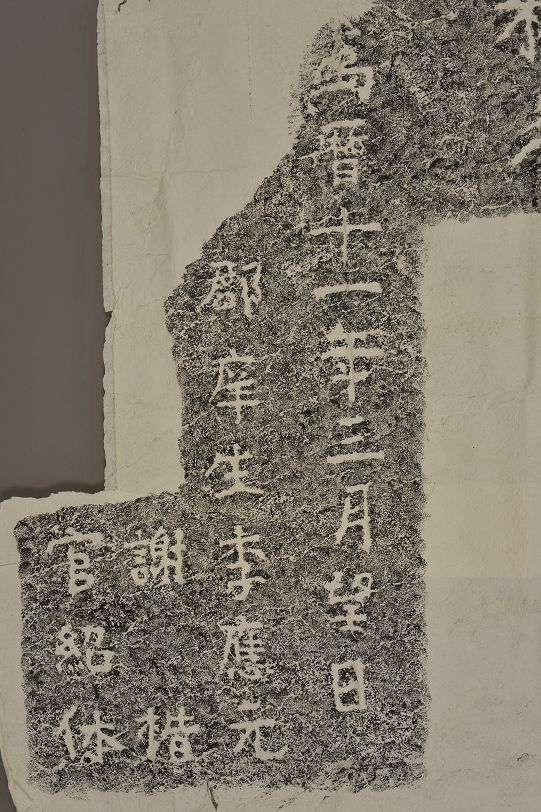 萬曆十一年三月望日
郡庠生李應元
謝
官紹休